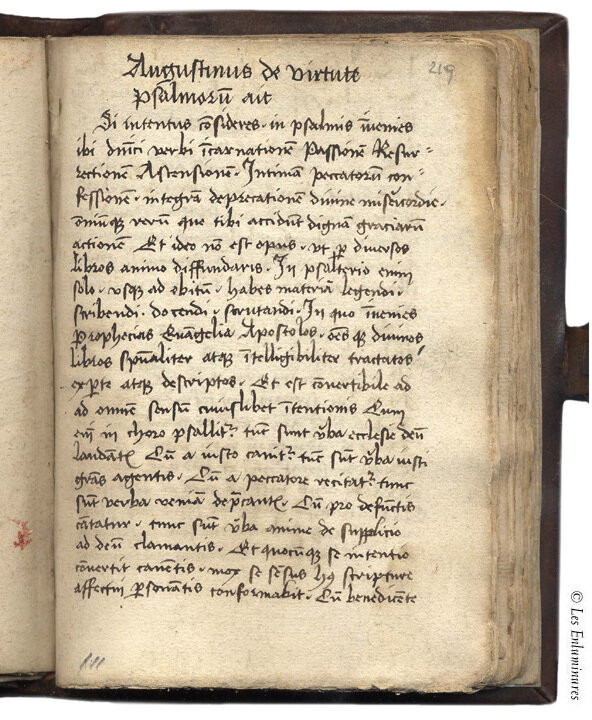 Augustinus de virtute
psalmorū ait
Si intentus cōsideres · in psalmis īvenies
ibi dn̄ici verbi īcarnationē Passionē Resur=
rectionē Astensionē · Intimā peccatorū con=
fessionē · integrā deprecationē divine misericordie ·
omniūqꝫ verū que tibi accidūt dignā graciarū
actionē Et ideo nō est opus · vt ꝑ diversos
libros animo diffundaris · In psalterio enim
solo · vsqꝫ ad obitū · habes materiā legendi ·
scribendi · docendi · scrutandi · In quo īvenies
Prophecias Evāgelia Apostolos · oēs qꝫ divinos
libros spūaliter atqꝫ ītelligibiliter tractatos
exꝑte atqꝫ descriptos · Et est cōvertibile ad
ad omnē sensū cuiuslibet ītentionis Cum
em̄ in choro psallit᷑ tūc sunt v̄ba ecclesie deū
laudāt Cū a iusto canit᷑ tūc sūt v̄ba iusti
grās agentis · Cū a peccatore recitat᷑ tunc
sūt verba veniā dep̄cant · Cū pro defūctis
cātatur · tunc sūt v̄ba anime de supplicio
ad deū clamantis · Et quocūqꝫ se intentio
cōvertit canētis · mox se sēsus hꝰ scripture
affectui ꝑsonātis conformabit · Cū benedicēte
219
© Les Enluminures